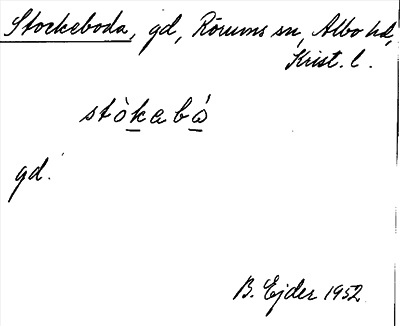 Stockeboda, gd, Rörums sn, Albo hd,
Krist. l.
stòkabó
gd.
B. Ejder 1952